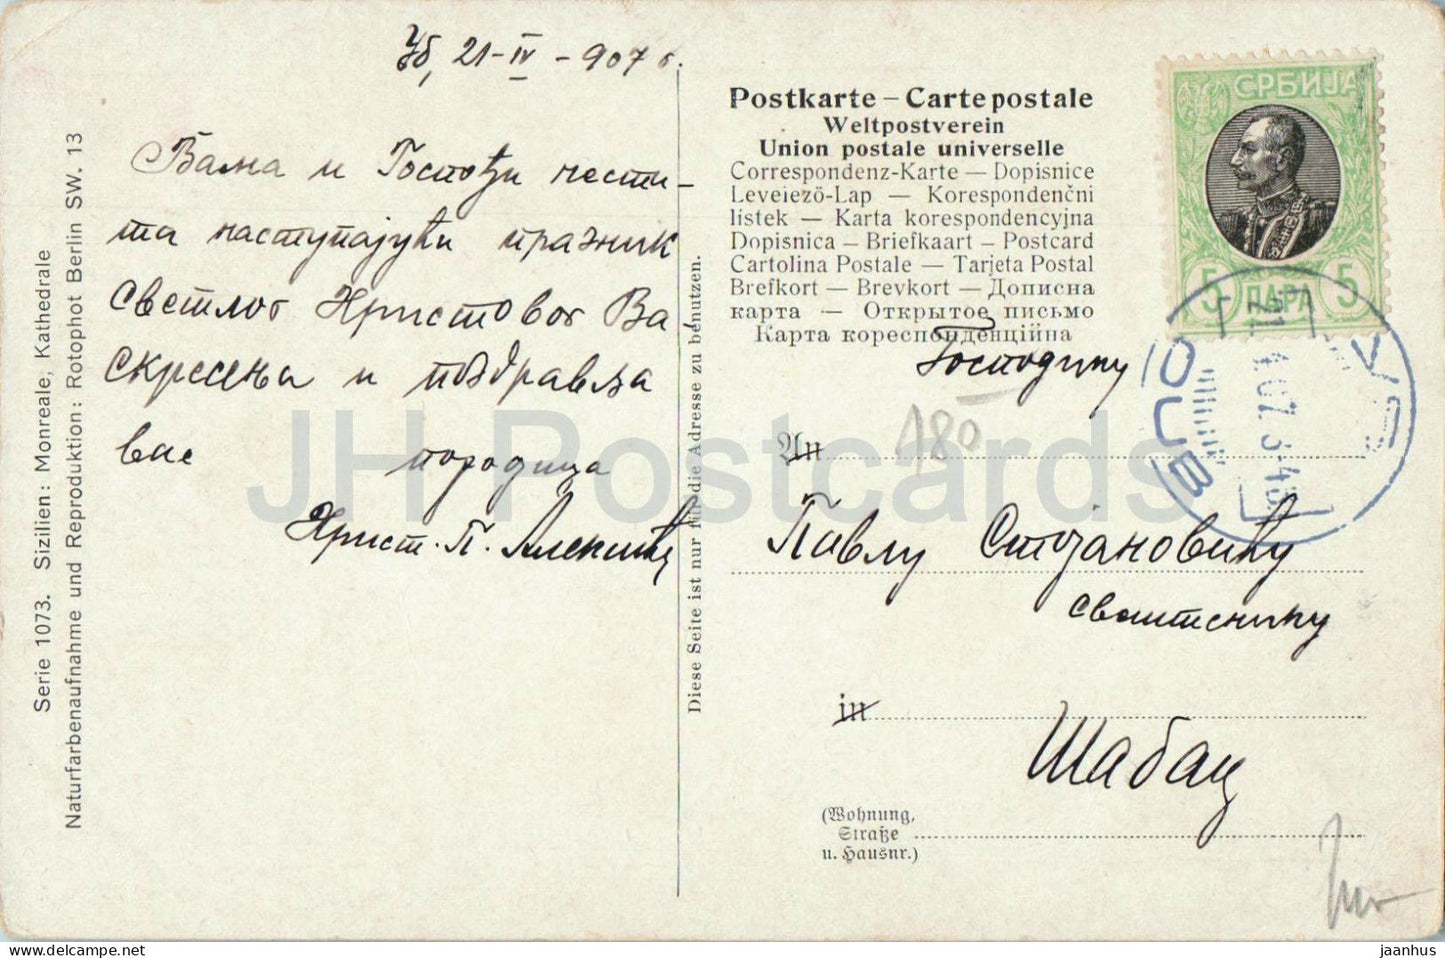 Уб, 21-IV-907 г.
Вама и Госпођи чести-
та наступајући празник
Светлог Христовог Ва-
скрсења и поздравља
вас породица
Христ. П. Алексића
Serie 1073. Sizilien: Monreale, Kathedrale
Naturfarbenaufnahme und Reproduktion: Rotophot Berlin SW. 13
Diese Seite ist nur für die Adresse zu benutzen.
Postkarte – Carte postale
Weltpostverein
Union postale universelle
Correspondenz-Karte — Dopisnice
Leveiezö-Lap — Korespondenčni
listek — Karta korespondencyjna
Dopisnica — Briefkaart — Postcard
Cartolina Postale — Tarjeta Postal
Brefkort — Brevkort — Дописна
карта — Открытое письмо
Карта кореспонденційна
СРБИЈА
5 ПАРА 5
OUB
21 4 07 3-4
Господину
An
180
Павлу Стојановићу
свештенику
in
Шабац
(Wohnung,
Straße
u. Hausnr.)
JH Postcards
jaanhus